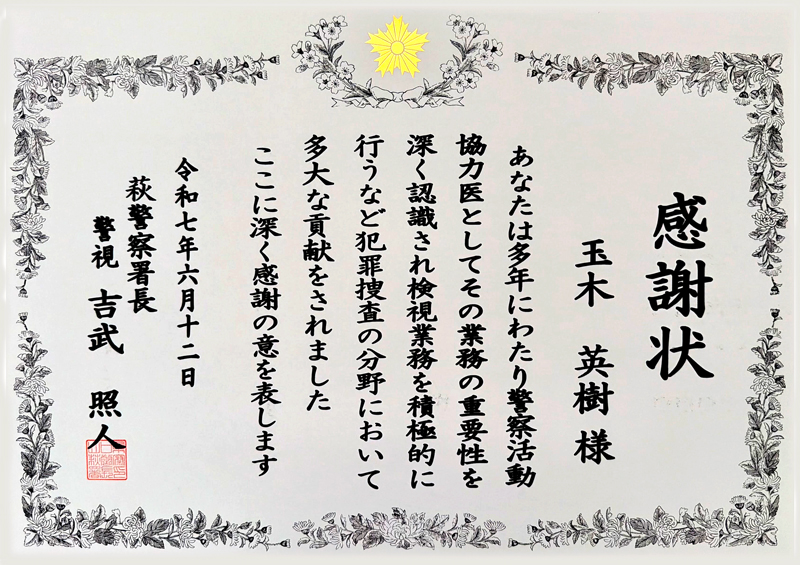 感謝状
玉木 英樹 様
あなたは多年にわたり警察活動
協力医としてその業務の重要性を
深く認識され検視業務を積極的に
行うなど犯罪捜査の分野において
多大な貢献をされました
ここに深く感謝の意を表します
令和七年六月十二日
萩警察署長
警視 吉武 照人